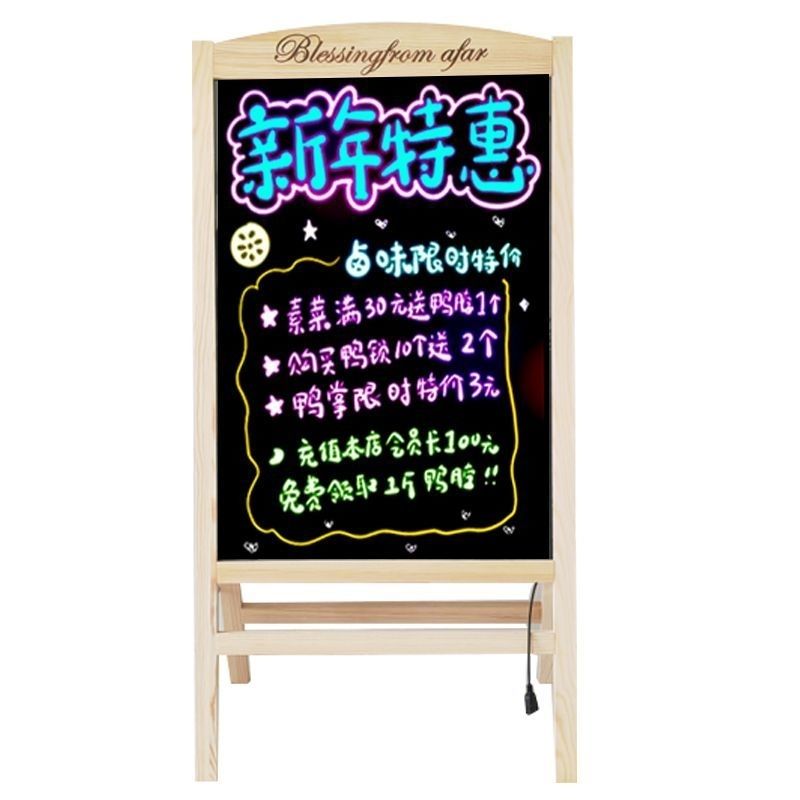 Blessingfrom afar
新年特惠
卤味限时特价
素菜满30元送鸭腔1个
购买鸭锁10个送2个
鸭掌限时特价3元
充值本店会员卡100元
免费领取1斤鸭腔!!